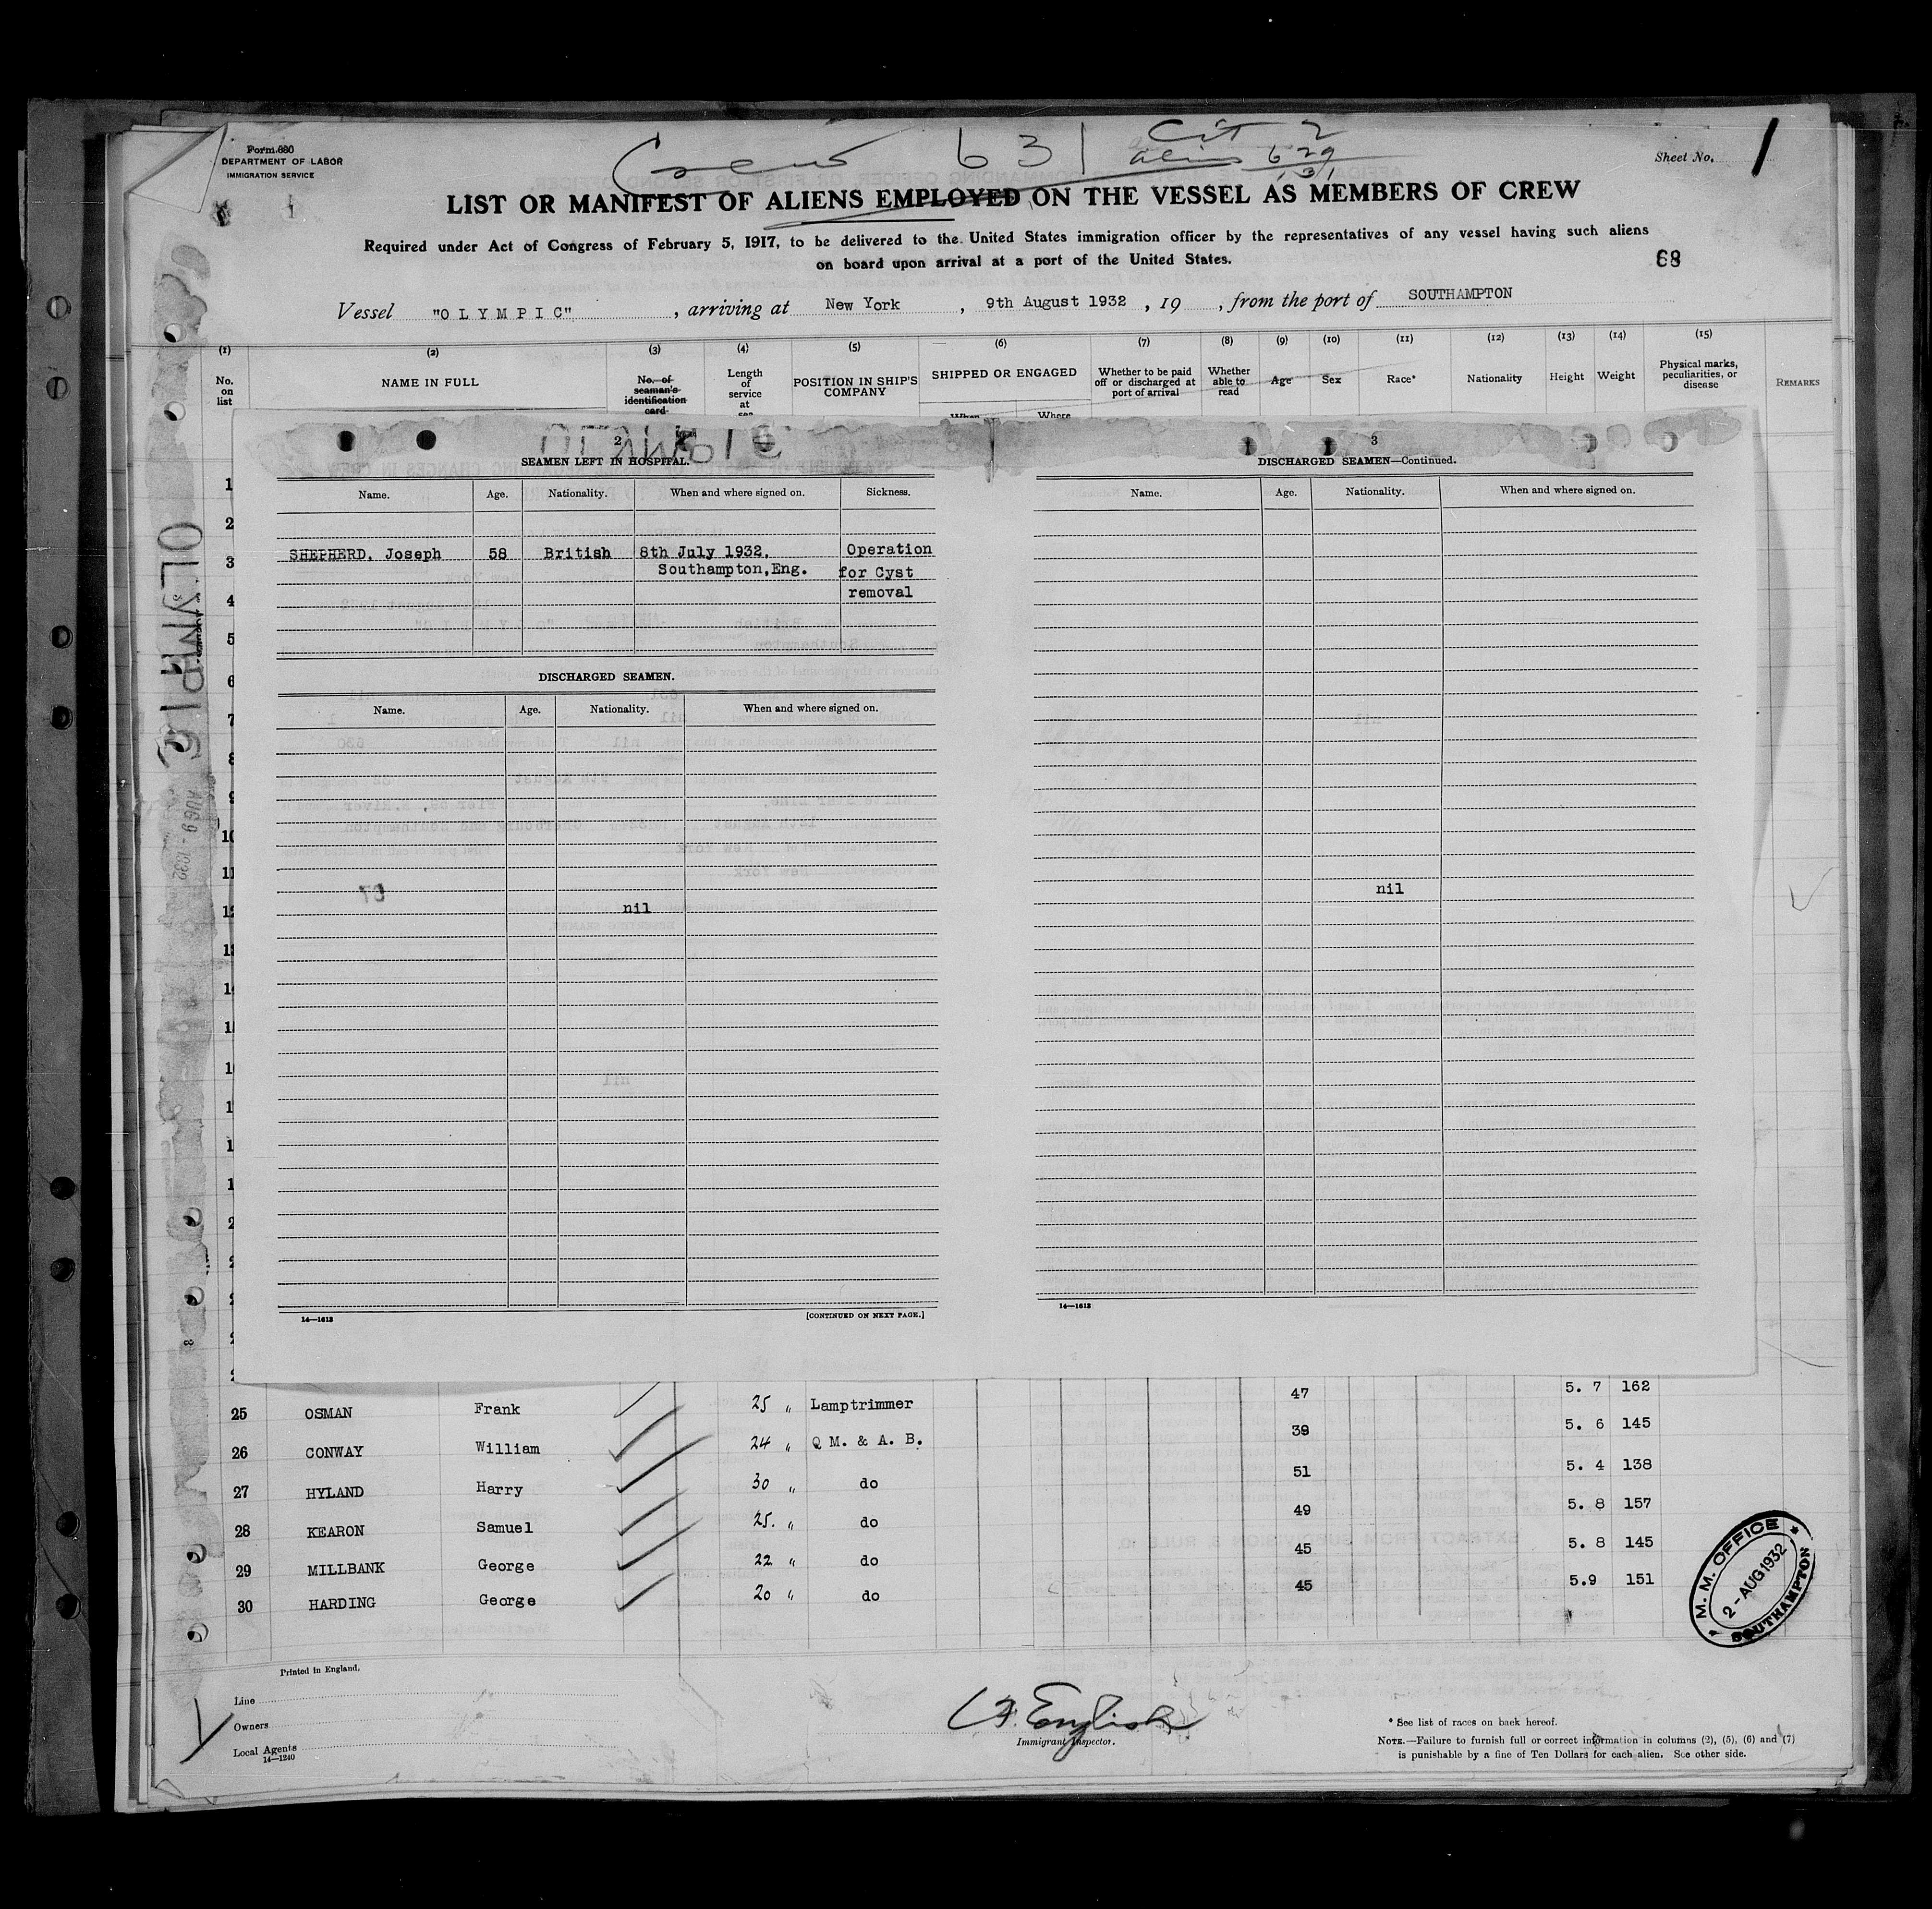 Form 680
DEPARTMENT OF LABOR
IMMIGRATION SERVICE
Crew 631 Cit 2
alien 629
631
Sheet No. 1
LIST OR MANIFEST OF ALIENS EMPLOYED ON THE VESSEL AS MEMBERS OF CREW
Required under Act of Congress of February 5, 1917, to be delivered to the United States immigration officer by the representatives of any vessel having such aliens
on board upon arrival at a port of the United States.
68
Vessel "OLYMPIC", arriving at New York, 9th August 1932, 19 , from the port of SOUTHAMPTON
(1) (2) (3) (4) (5) (6) (7) (8) (9) (10) (11) (12) (13) (14) (15)
No. on list
NAME IN FULL
No. of seaman's identification card
Length of service at sea
POSITION IN SHIP'S COMPANY
SHIPPED OR ENGAGED
When Where
Whether to be paid off or discharged at port of arrival
Whether able to read
Age
Sex
Race*
Nationality
Height
Weight
Physical marks, peculiarities, or disease
REMARKS
OLYMPIC
2
SEAMEN LEFT IN HOSPITAL.
Name. Age. Nationality. When and where signed on. Sickness.
SHEPHERD, Joseph 58 British 8th July 1932, Operation
Southampton, Eng. for Cyst
removal
DISCHARGED SEAMEN.
Name. Age. Nationality. When and where signed on.
67
nil
14—1613 [CONTINUED ON NEXT PAGE.]
3
DISCHARGED SEAMEN—Continued.
Name. Age. Nationality. When and where signed on.
nil
14—1613
OLYMPIC
AUG 9 - 1932
1
2
3
4
5
6
7
8
9
10
11
12
5. 7 162
25 OSMAN Frank 25 " Lamptrimmer 47
5. 6 145
26 CONWAY William 24 " Q M. & A. B. 39
5. 4 138
27 HYLAND Harry 30 " do 51
5. 8 157
28 KEARON Samuel 25. " do 49
5. 8 145
29 MILLBANK George 22 " do 45
5.9 151
30 HARDING George 20 " do 45
M. M. OFFICE
2 - AUG 1932
SOUTHAMPTON
Printed in England.
Line
Owners
Local Agents
14—1240
English
Immigrant Inspector.
* See list of races on back hereof.
NOTE.—Failure to furnish full or correct information in columns (2), (5), (6) and (7)
is punishable by a fine of Ten Dollars for each alien. See other side.